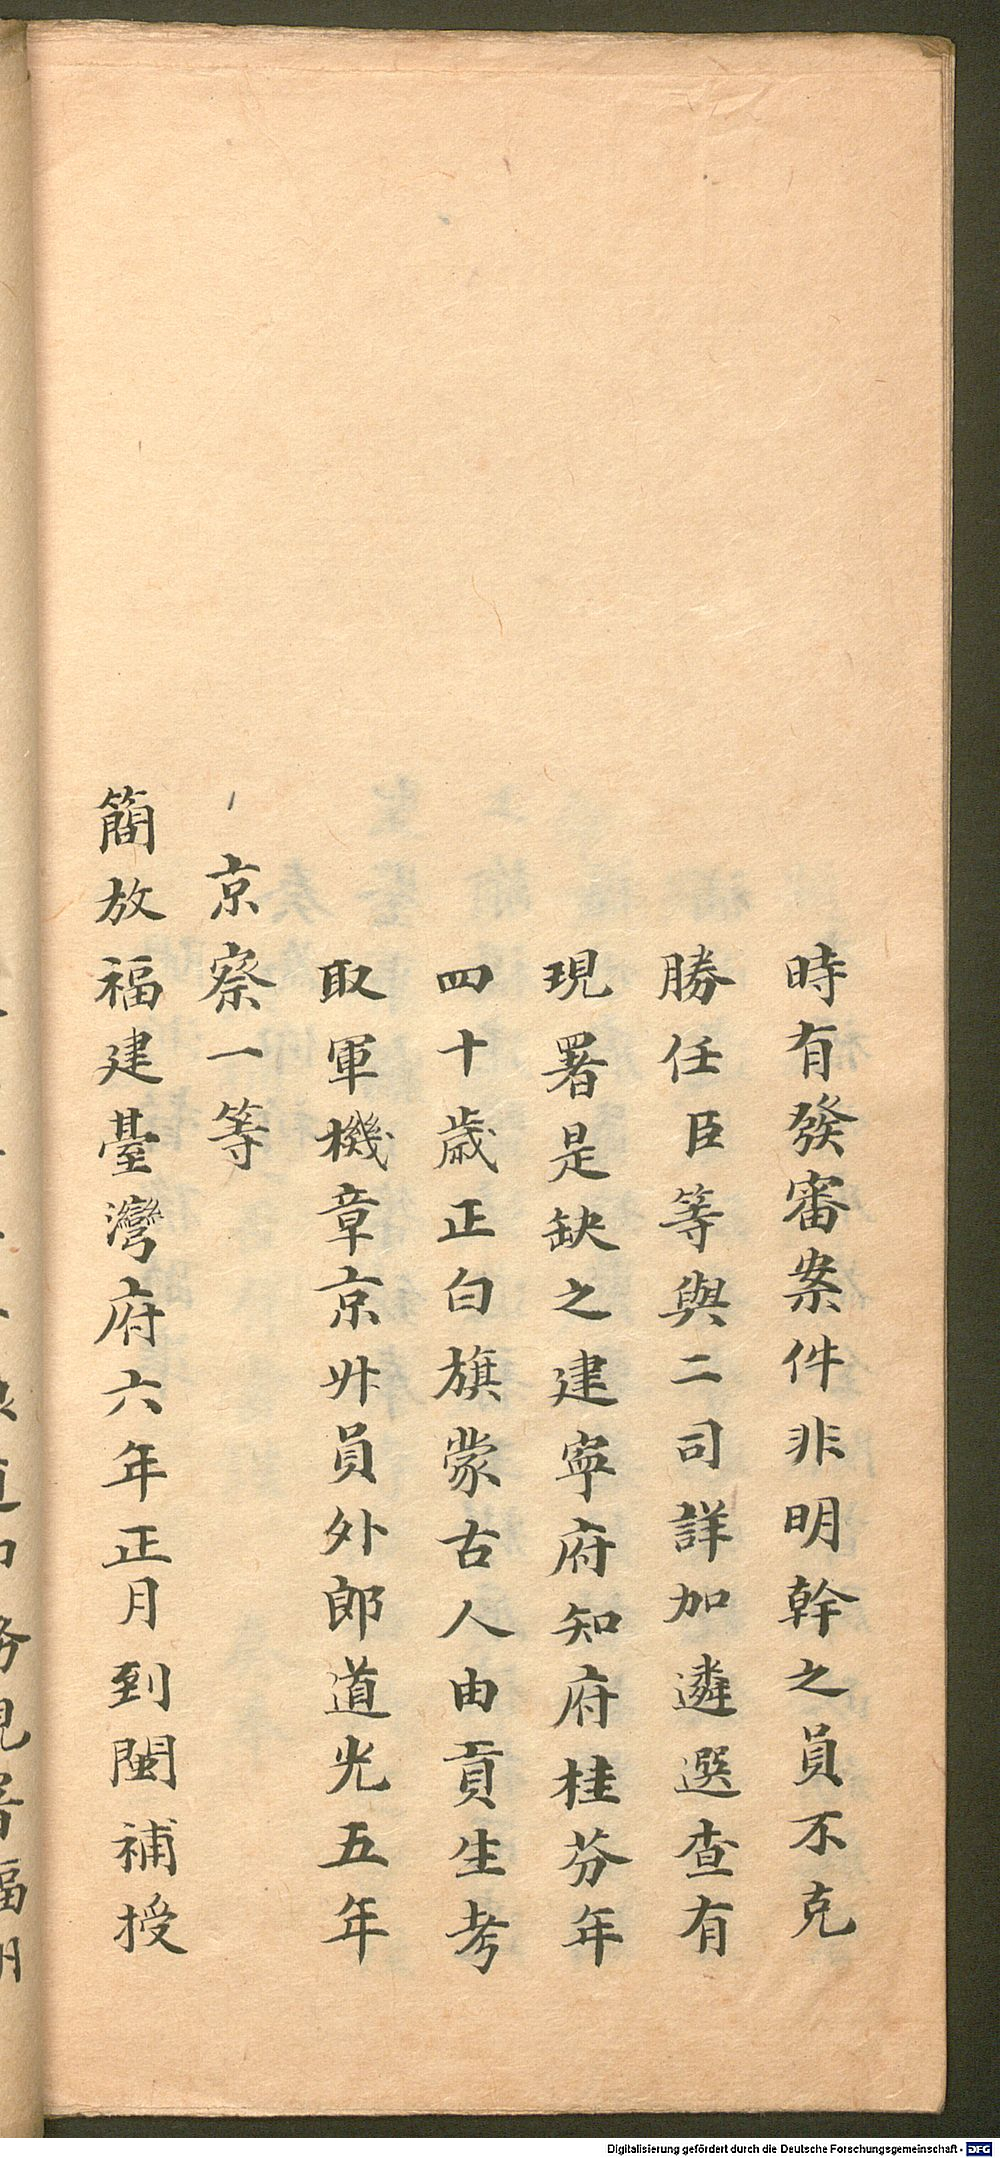 時有發審案件非明幹之員不克
勝任臣等與二司詳加遴選查有
現署是缺之建寧府知府桂芬年
四十歲正白旗蒙古人由貢生考
取軍機章京淋員外郎道光五年
京察一等
簡放福建臺灣府六年正月到閩補授
Digitalisierung gefördert durch die Deutsche Forschungsgemeinschaft - DFG